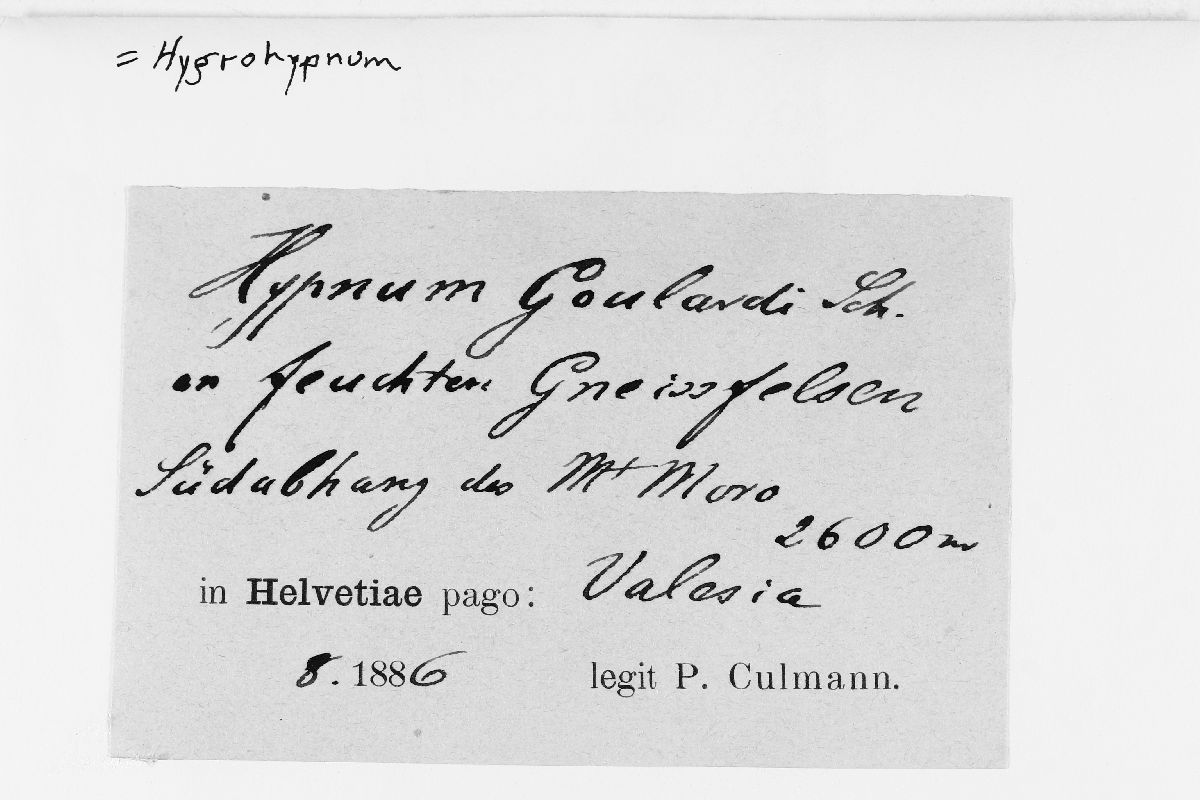 = Hygrohypnum
Hypnum Goulardi Sch.
an feuchten Gneissfelsen
Südabhang des Mt Moro
2600 m
in Helvetiae pago: Valesia
8. 1886 legit P. Culmann.